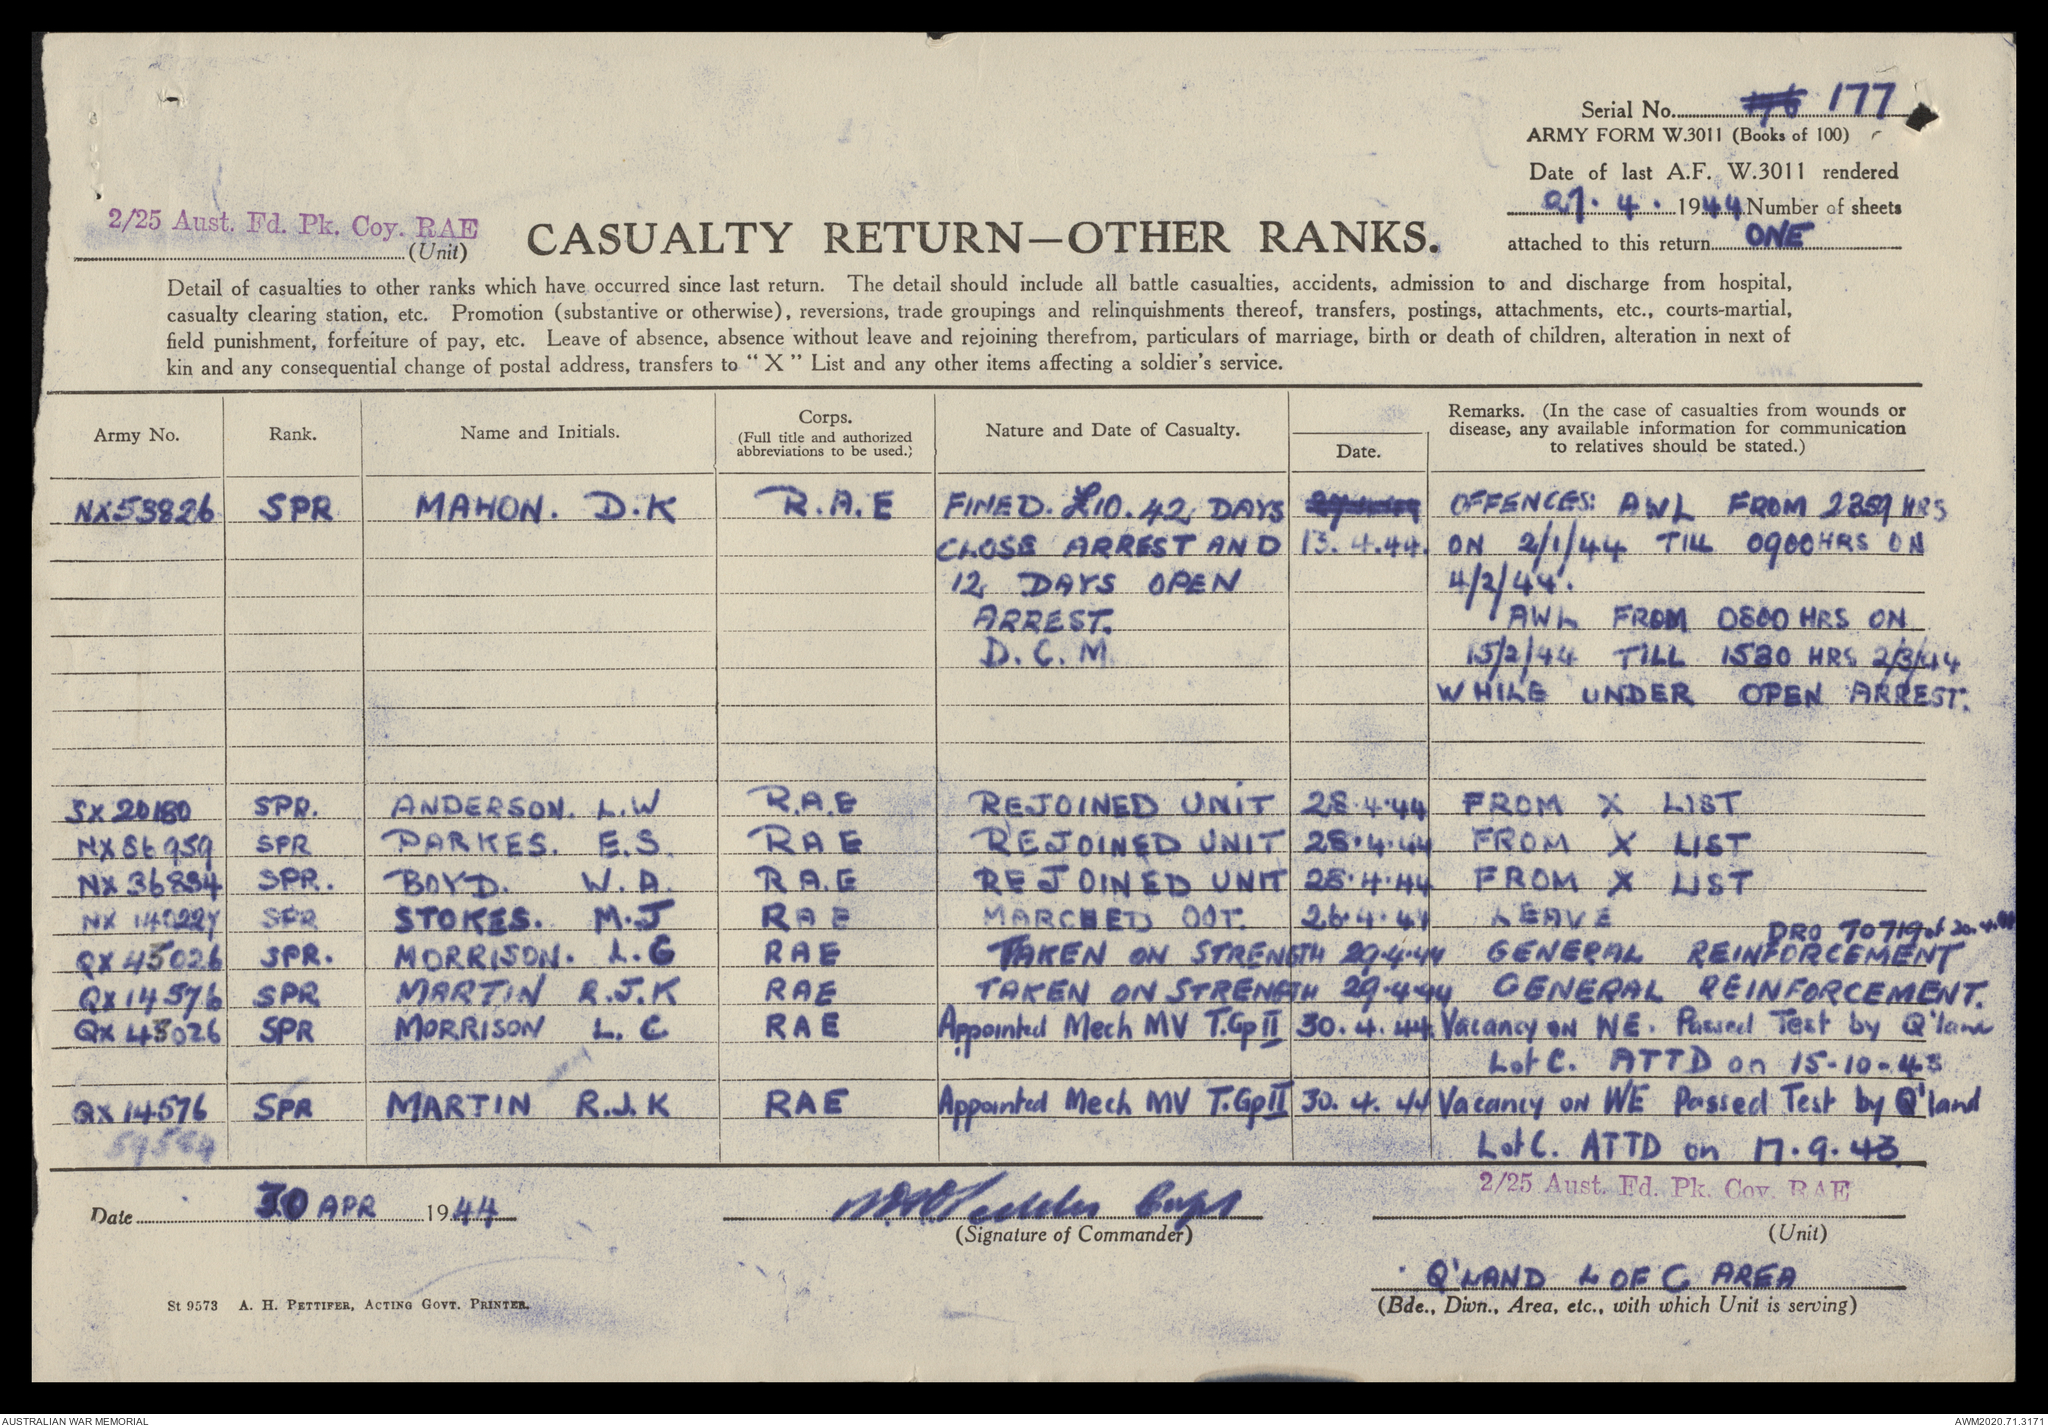 Serial No. 177
ARMY FORM W.3011 (Books of 100)
Date of last A.F. W.3011 rendered
27.4.1944 Number of sheets
attached to this return ONE
2/25 Aust. Fd. Pk. Coy. RAE
(Unit)
CASUALTY RETURN—OTHER RANKS.
Detail of casualties to other ranks which have occurred since last return. The detail should include all battle casualties, accidents, admission to and discharge from hospital,
casualty clearing station, etc. Promotion (substantive or otherwise), reversions, trade groupings and relinquishments thereof, transfers, postings, attachments, etc., courts-martial,
field punishment, forfeiture of pay, etc. Leave of absence, absence without leave and rejoining therefrom, particulars of marriage, birth or death of children, alteration in next of
kin and any consequential change of postal address, transfers to "X" List and any other items affecting a soldier's service.
Army No. Rank. Name and Initials. Corps. (Full title and authorized abbreviations to be used.) Nature and Date of Casualty. Date. Remarks. (In the case of casualties from wounds or disease, any available information for communication to relatives should be stated.)
NX53826 SPR MAHON. D.K R.A.E FINED. £10. 42 DAYS OFFENCES: AWL FROM 2359 HRS
CLOSE ARREST AND 13.4.44. ON 2/1/44 TILL 0900 HRS ON
12 DAYS OPEN 4/2/44.
ARREST. AWL FROM 0800 HRS ON
D.C.M. 15/2/44 TILL 1530 HRS 2/3/44
WHILE UNDER OPEN ARREST.
SX20180 SPR. ANDERSON. L.W R.A.E REJOINED UNIT 28.4.44 FROM X LIST
NX86959 SPR PARKES. E.S. RAE REJOINED UNIT 28.4.44 FROM X LIST
NX36834 SPR. BOYD. W.A. RA.E REJOINED UNIT 28.4.44 FROM X LIST
SPR STOKES. M.J RAE MARCHED OUT. 26.4.44 LEAVE
DRO 70719 of 20.4.44
QX45026 SPR. MORRISON. L.G RAE TAKEN ON STRENGTH 29.4.44 GENERAL REINFORCEMENT
QX14576 SPR MARTIN R.J.K RAE TAKEN ON STRENGTH 29.4.44 GENERAL REINFORCEMENT.
QX45026 SPR MORRISON L. C RAE Appointed Mech MV T.Gp II 30.4.44. Vacancy on WE. Passed Test by Q'land
L of C. ATTD on 15-10-43
QX14576 SPR MARTIN R.J.K RAE Appointed Mech MV T.Gp II 30.4.44 Vacancy on WE Passed Test by Q'land
L of C. ATTD on 17.9.43
2/25 Aust. Fd. Pk. Coy. RAE
Date 30 APR 1944
(Signature of Commander)
(Unit)
Q'LAND L OF C AREA
(Bde., Divn., Area, etc., with which Unit is serving)
St 9573 A. H. PETTIFER, ACTING GOVT. PRINTER.
AUSTRALIAN WAR MEMORIAL AWM2020.71.3171